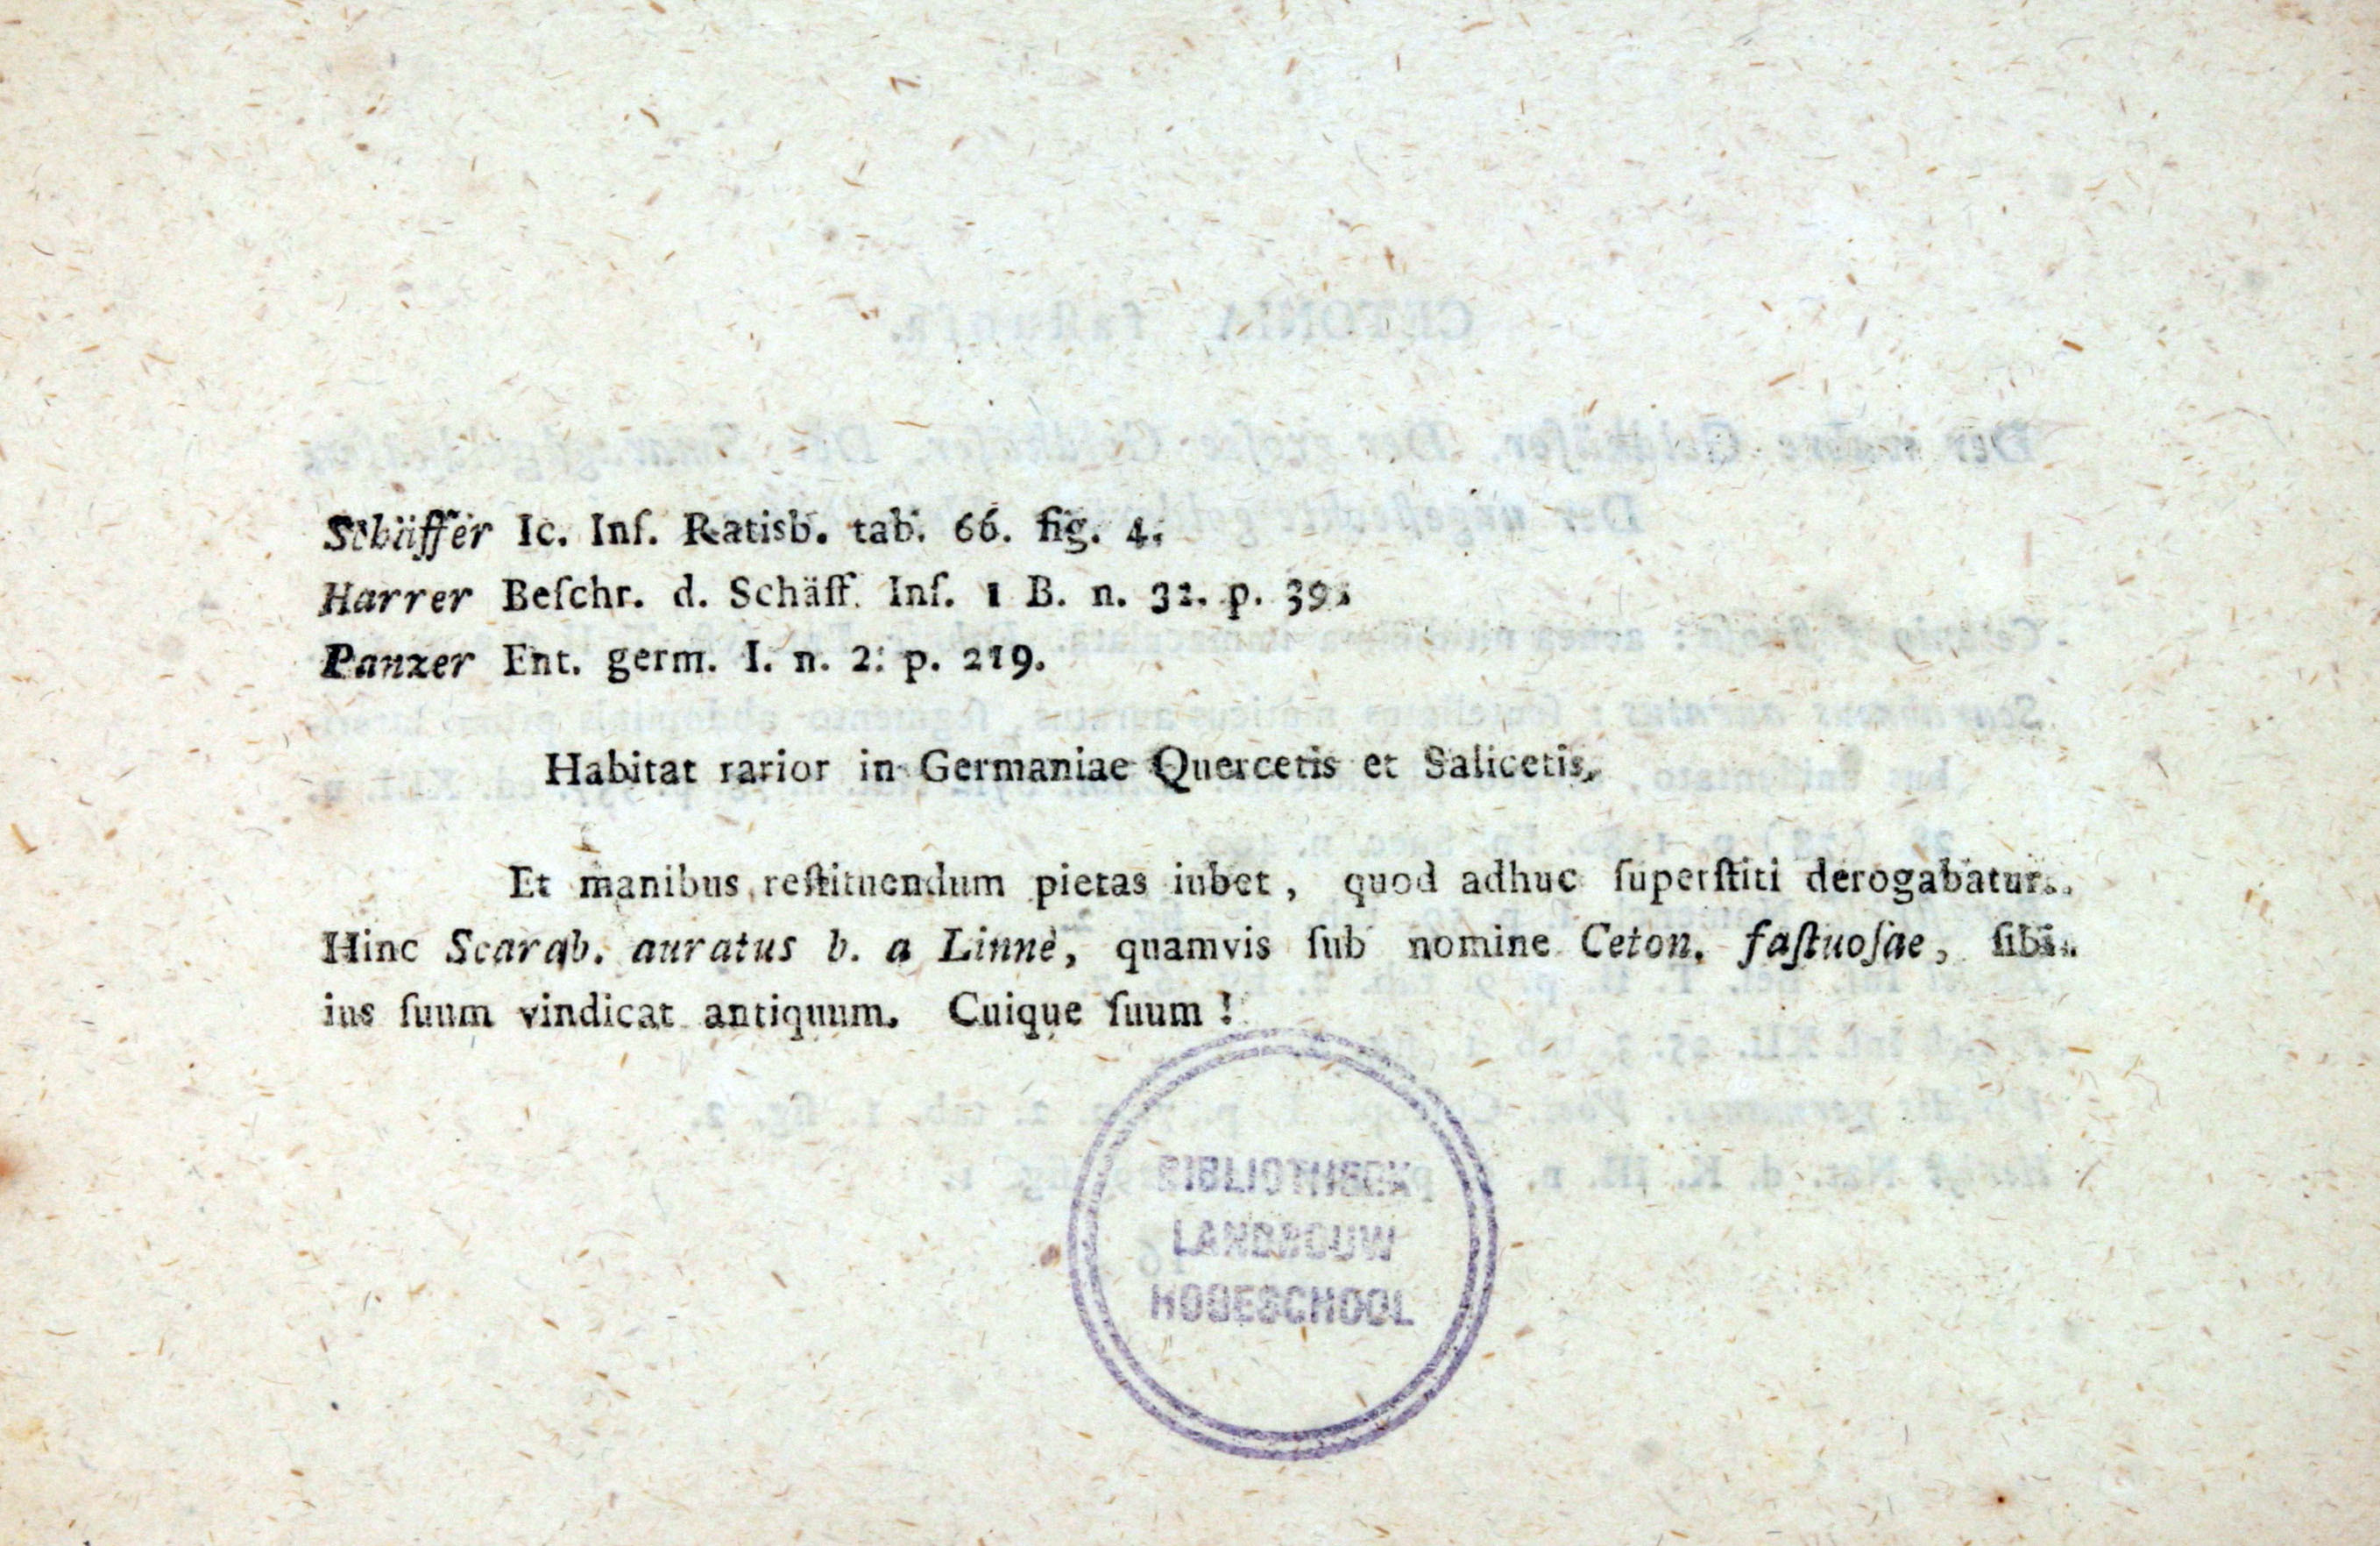 Schäffer Ic. Inſ. Ratisb. tab. 66. fig. 4.
Harrer Beſchr. d. Schäff. Inſ. 1 B. n. 32. p. 39.
Panzer Ent. germ. I. n. 2. p. 219.
Habitat rarior in Germaniae Quercetis et Salicetis.
Et manibus reſtituendum pietas iubet, quod adhuc ſuperſtiti derogabatur.
Hinc Scarab. auratus b. a Linné, quamvis ſub nomine Ceton. faſtuoſae, ſibi
ius ſuum vindicat antiquum. Cuique ſuum!
BIBLIOTHEEK
LANDBOUW
HOGESCHOOL